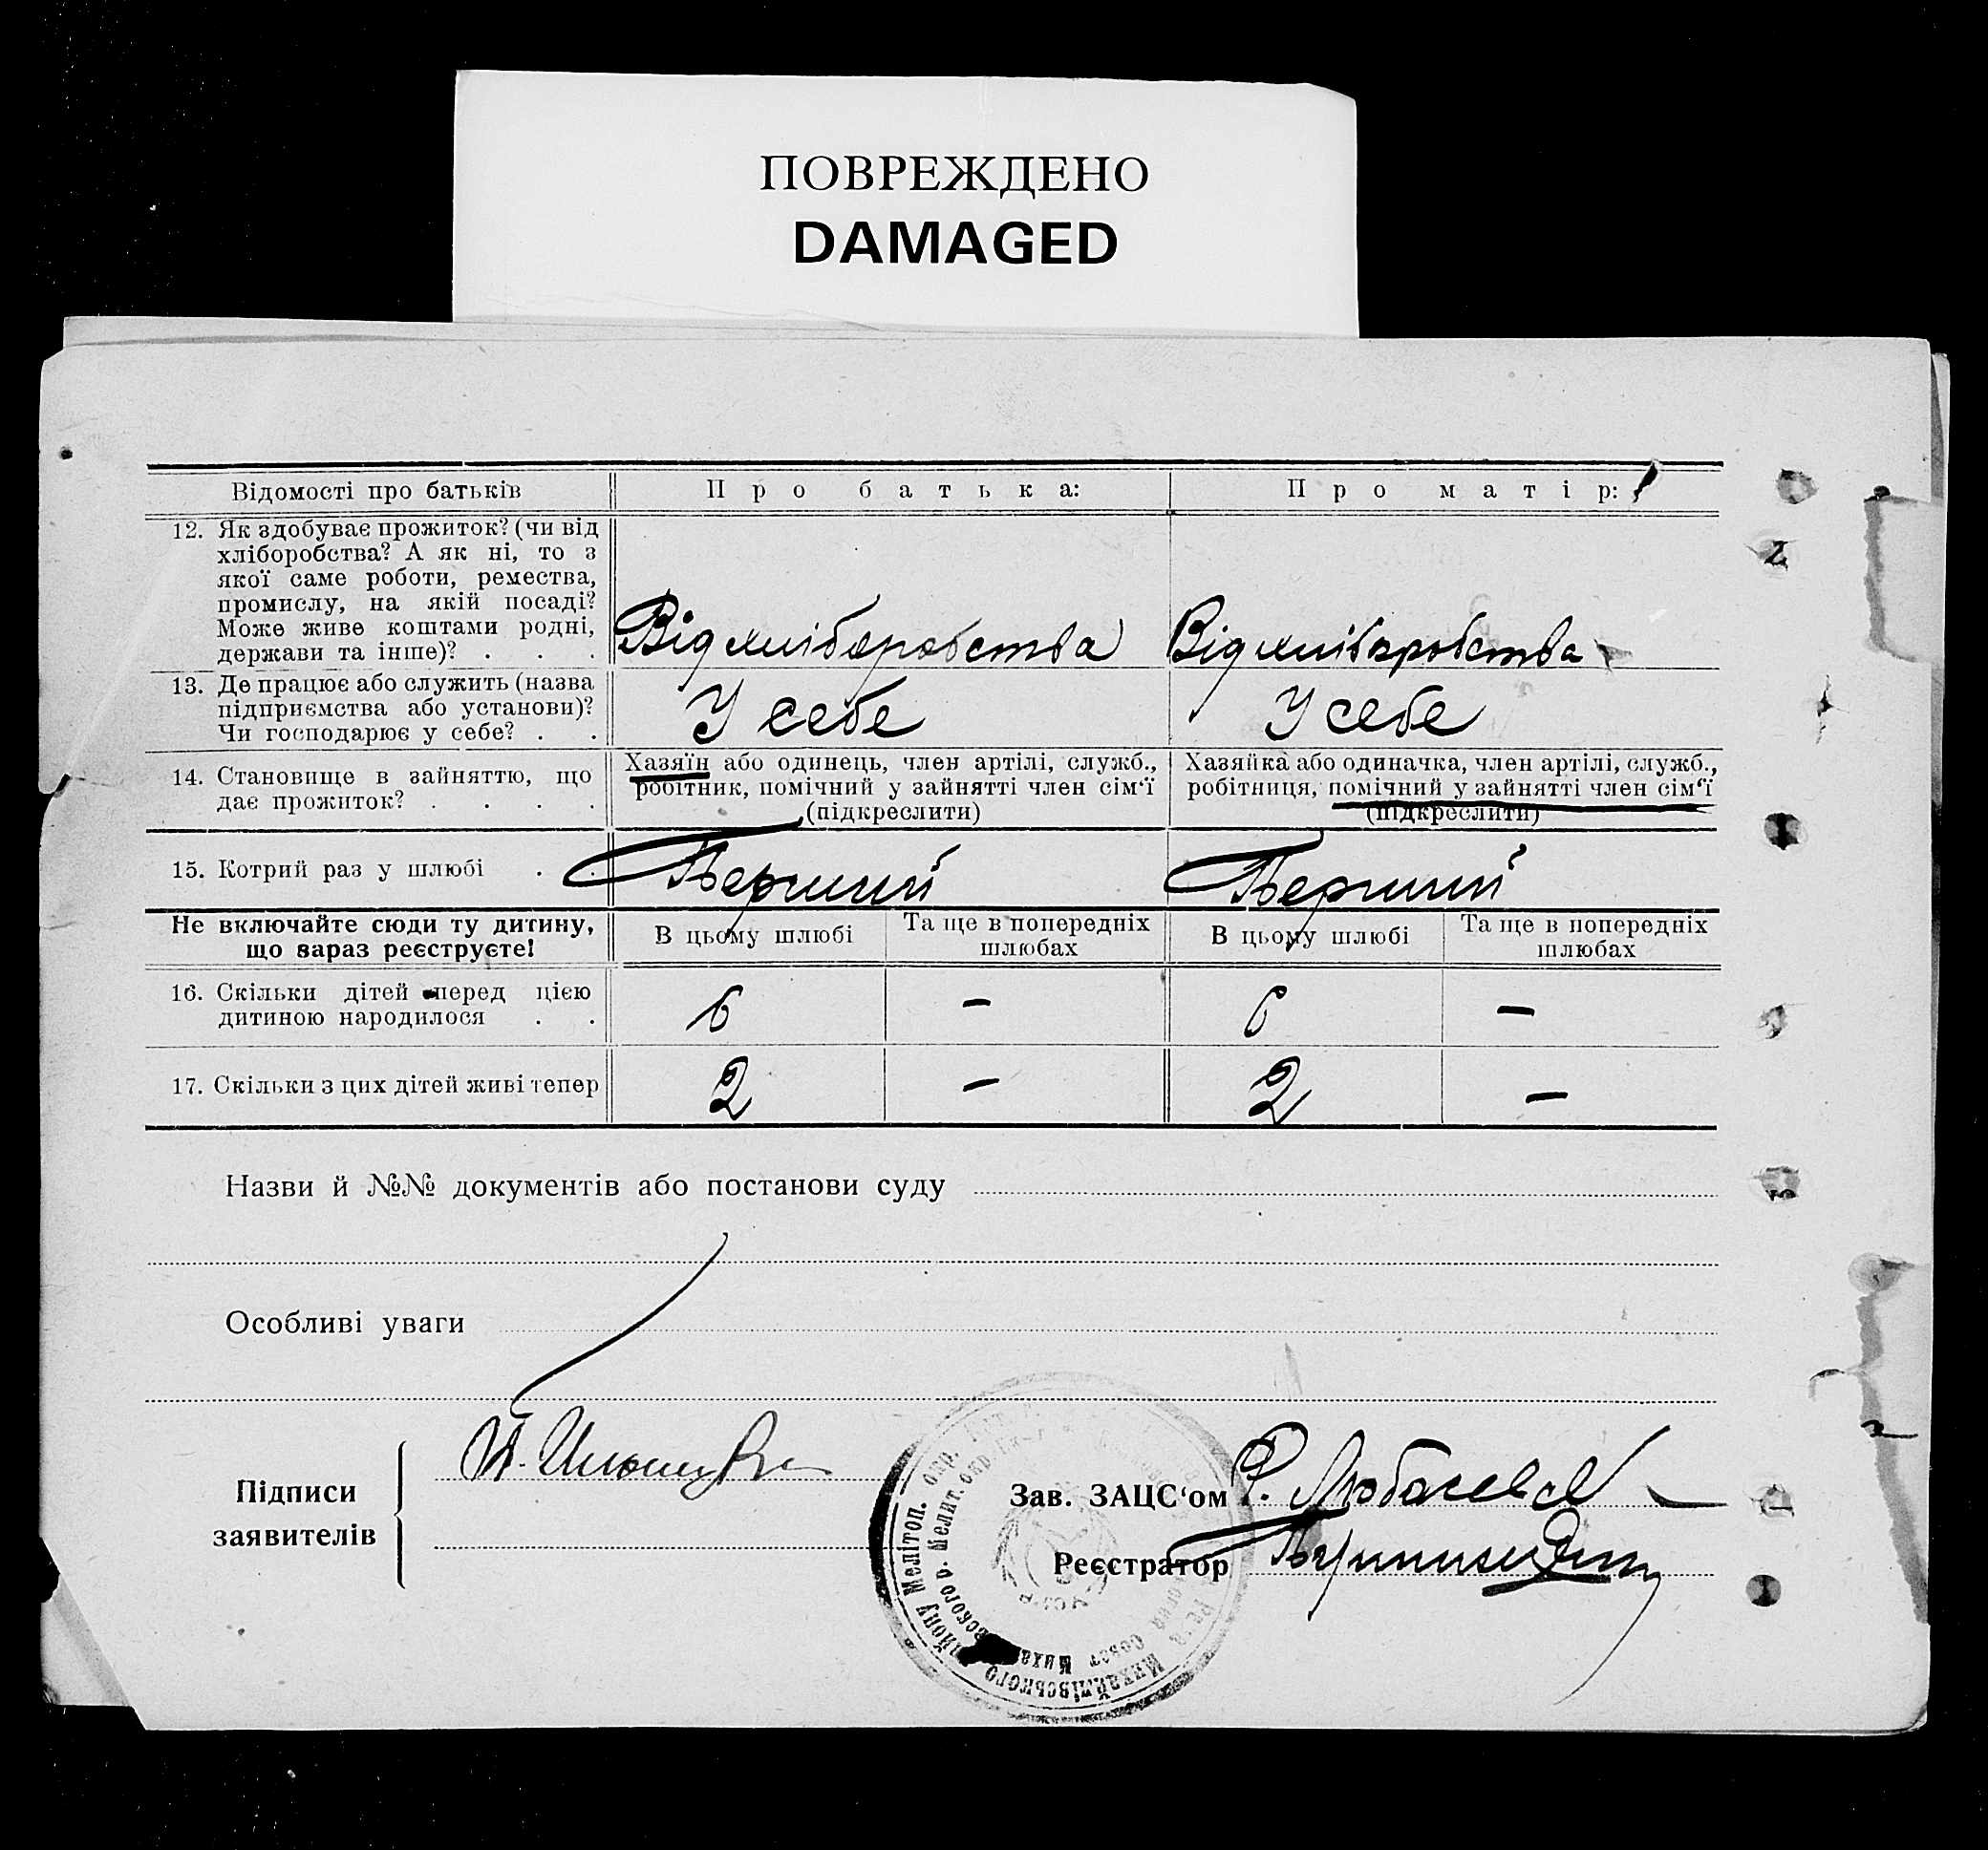 ПОВРЕЖДЕНО
DAMAGED
Відомості про батьків
Про батька:
Про матір:
12. Як здобуває прожиток? (чи від
хліборобства? А як ні, то з
якої саме роботи, ремества,
промислу, на якій посаді?
Може живе коштами родні,
держави та інше)? . . .
Від хліборобства
Від хліборобства
13. Де працює або служить (назва
підприємства або установи)?
Чи господарює у себе? . .
У себе
У себе
14. Становище в зайняттю, що
дає прожиток? . . . .
Хазяїн або одинець, член артілі, служб.,
робітник, помічний у зайнятті член сім‘ї
(підкреслити)
Хазяйка або одиначка, член артілі, служб.,
робітниця, помічний у зайнятті член сім‘ї
(підкреслити)
15. Котрий раз у шлюбі . .
Перший
Перший
Не включайте сюди ту дитину,
що зараз реєструєте!
В цьому шлюбі
Та ще в попередніх
шлюбах
В цьому шлюбі
Та ще в попередніх
шлюбах
16. Скільки дітей перед цією
дитиною народилося . .
6
–
6
–
17. Скільки з цих дітей живі тепер
2
–
2
–
Назви й №№ документів або постанови суду
Особливі уваги
Підписи
заявителів
Зав. ЗАЦС‘ом
Реєстратор
Михайлівського району Мелітоп. окр.